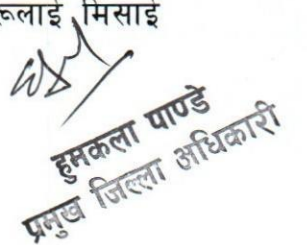 रूलाई मिसाई
हुमकला पाण्डे
प्रमुख जिल्ला अधिकारी